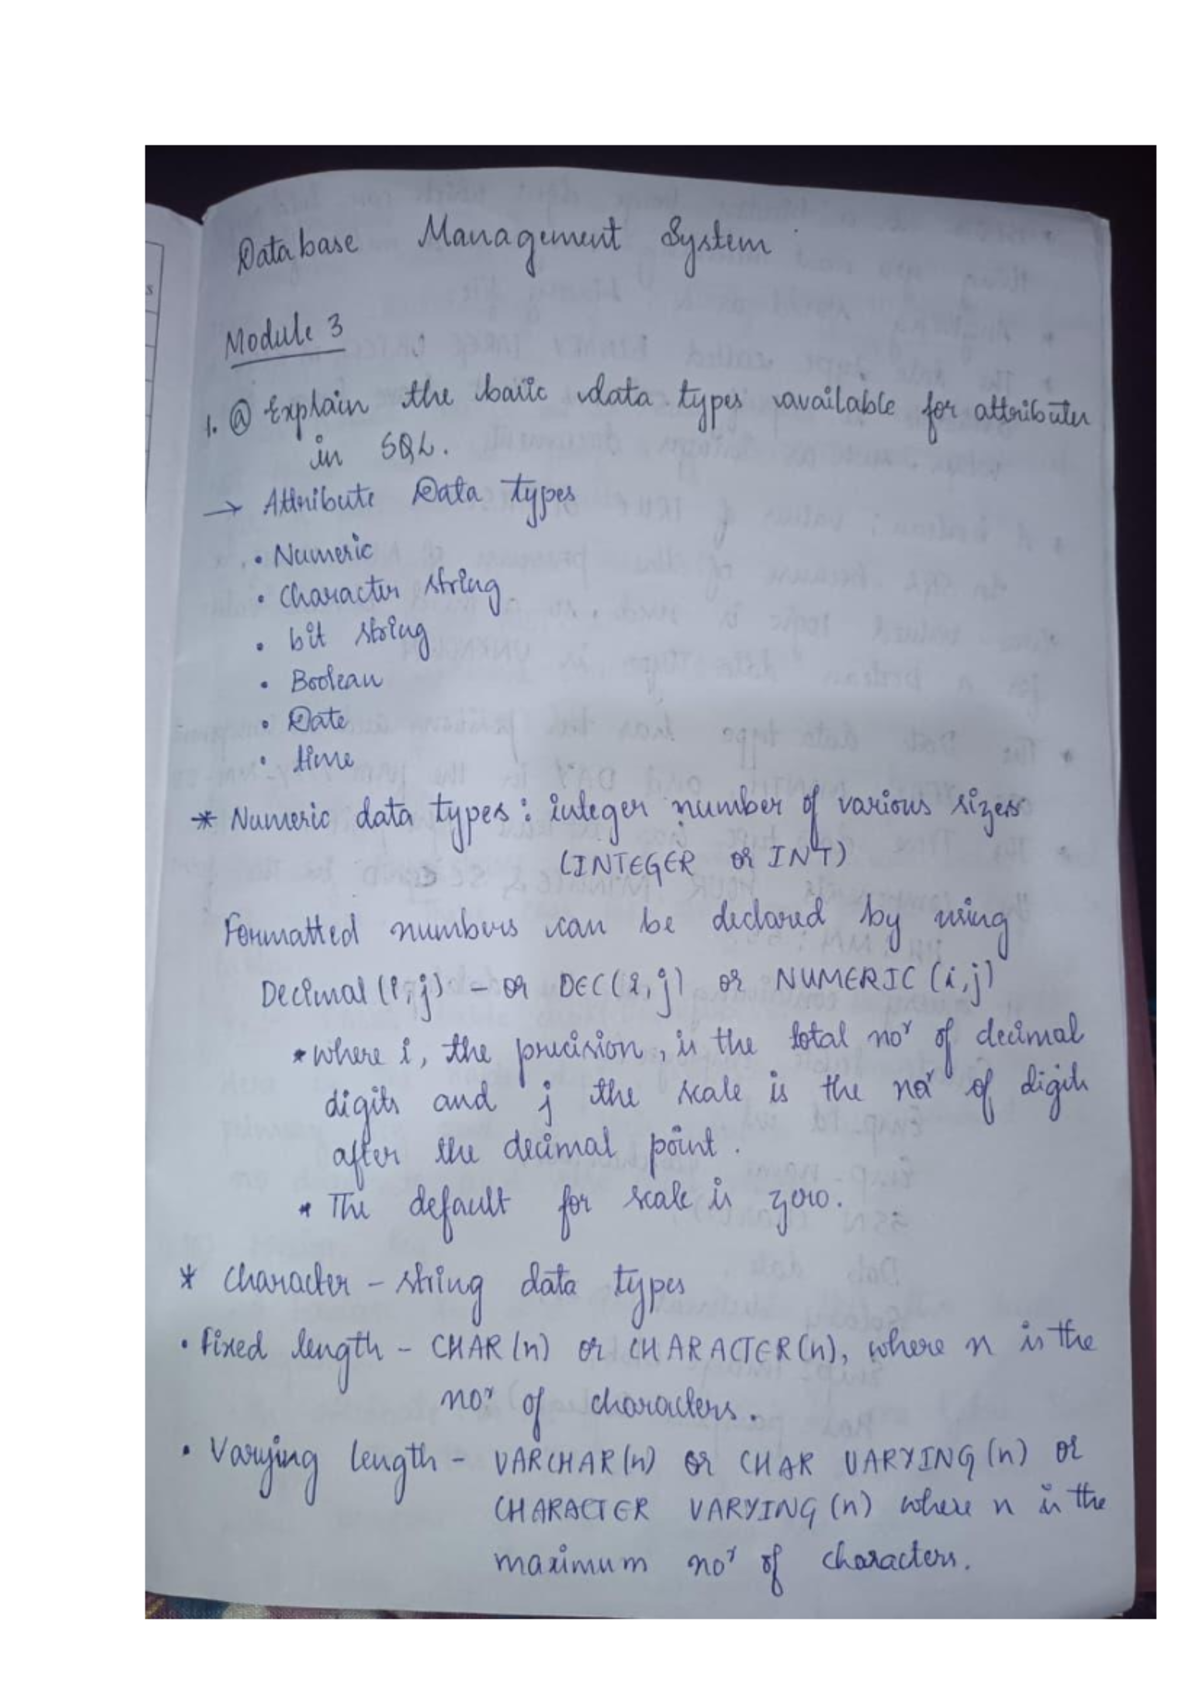 Database Management System
Module 3
1. ⓐ Explain the basic data types available for attributes
in SQL.
→ Attribute Data types
• Numeric
• Character string
• bit string
• Boolean
• Date
• time
* Numeric data types : integer number of various sizes
(INTEGER or INT)
Formatted numbers can be declared by using
Decimal (i,j) – or DEC(i,j) or NUMERIC (i,j)
* where i, the precision, is the total noʳ of decimal
digits and j the scale is the noʳ of digits
after the decimal point.
* The default for scale is zero.
* Character – string data types
• fixed length – CHAR(n) or CHARACTER(n), where n is the
noʳ of characters.
• Varying length – VARCHAR(n) or CHAR VARYING (n) or
CHARACTER VARYING (n) where n is the
maximum noʳ of characters.